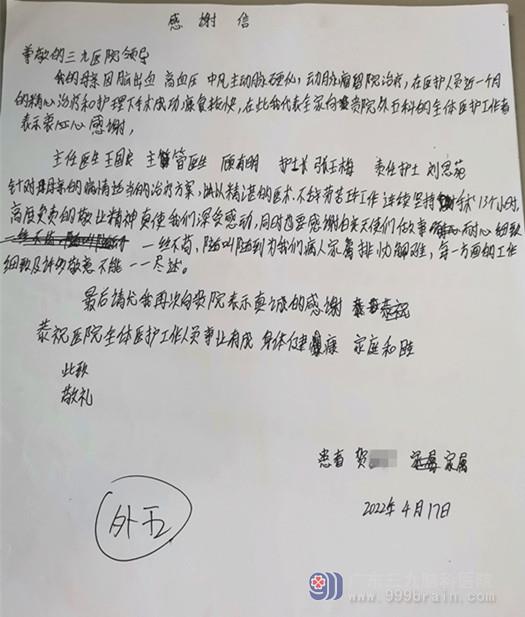 感谢信
尊敬的三九医院领导
我的母亲因脑出血 高血压 中风主动脉硬化,动脉瘤留院治疗,在医护人员近一个月
的精心治疗和护理下手术成功康复较快,在此我代表全家向贵院外五科的全体医护工作者
表示衷心感谢,
主任医生王国良 主管医生 顾有明 护士长 张玉梅 责任护士 刘思苑
针对母亲的病情适当的治疗方案,他以精湛的医术,不辞劳苦工作连续坚持手术13个小时,
高度负责的敬业精神真使我们深受感动,同时也要感谢白衣天使们任劳 耐心细致
一丝不苟,随叫随到为我们病人家属排忧解难,每一方面的工作
细致及许多敬意不能一一尽述。
最后请允我再次向贵院表示真诚的感谢 恭祝
恭祝医院全体医护工作人员事业有成 身体健康 家庭和睦
此致
敬礼
患者 贺 家属
2022年4月17日
外五
广东三九脑科医院
www.999brain.com